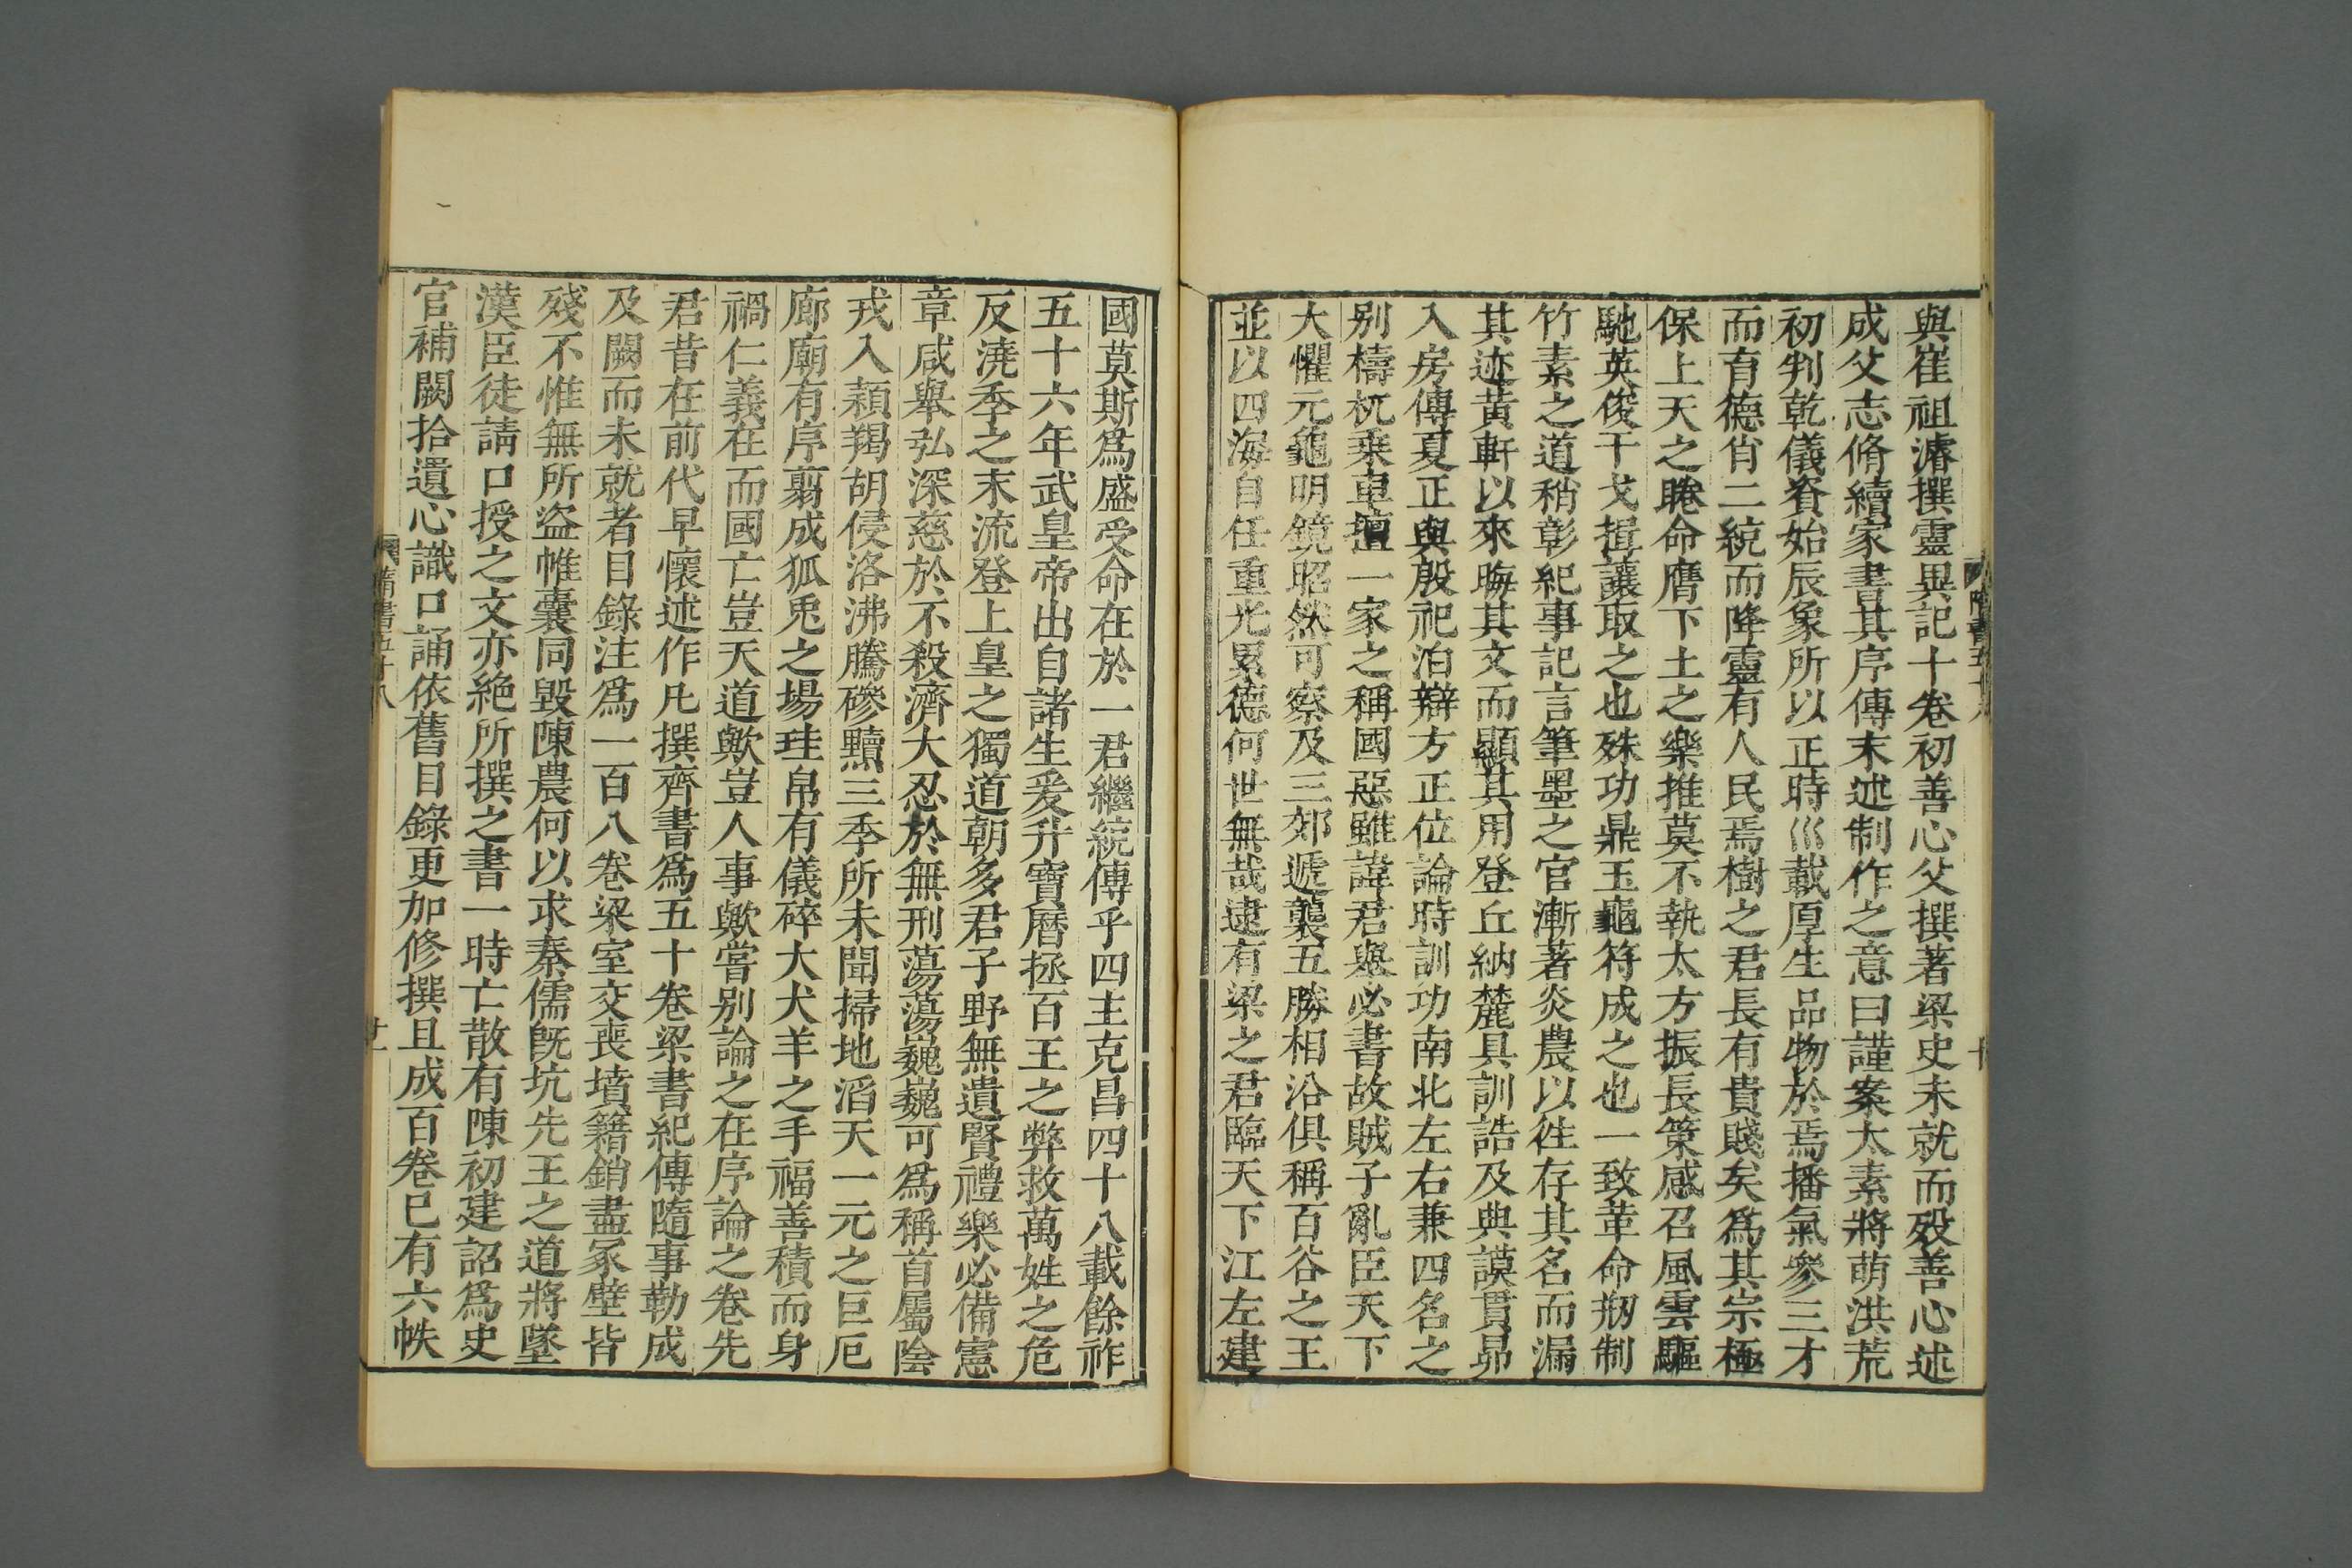 與崔祖濬撰靈異記十卷初善心父撰著梁史未就而歿善心述
成父志脩續家書其序傳末述制作之意曰謹案太素將萌洪荒
初判乾儀資始辰象所以正時巛載厚生品物於焉播氣參三才
而育德肖二統而降靈有人民焉樹之君長有貴賤矣爲其宗極
保上天之睠命膺下土之樂推莫不執太方振長策感召風雲驅
馳英俊干戈揖讓取之也殊功鼎玉龜符成之也一致革命剏制
竹素之道稍彰紀事記言筆墨之官漸著炎農以徃存其名而漏
其迹黃軒以來晦其文而顯其用登丘納麓具訓誥及典謨貫昴
入房傳夏正與殷祀洎辯方正位論時訓功南北左右兼四名之
别檮杌乗車擅一家之稱國惡雖諱君舉必書故賊子亂臣天下
大懼元龜明鏡昭然可察及三郊遞襲五勝相沿俱稱百谷之王
並以四海自任重光累德何世無哉逮有梁之君臨天下江左建
國莫斯爲盛受命在於一君繼統傳乎四主克昌四十八載餘祚
五十六年武皇帝出自諸生爰升寶曆拯百王之弊救萬姓之危
反澆季之末流登上皇之獨道朝多君子野無遺賢禮樂必備憲
章咸舉弘深慈於不殺濟大忍於無刑蕩蕩巍巍可爲稱首屬隂
戎入潁羯胡侵洛沸騰磣黷三季所未聞掃地滔天一元之巨厄
廊廟有序翦成狐兎之場珪帛有儀碎犬羊之手福善積而身
禍仁義在而國亡豈天道歟豈人事歟嘗别論之在序論之卷先
君昔在前代早懷述作凡撰齊書爲五十卷梁書紀傳隨事勒成
及闕而未就者目錄注爲一百八卷梁室交喪墳籍銷盡冢壁皆
殘不惟無所盜帷囊同毀陳農何以求秦儒旣坑先王之道將墜
漢臣徒請口授之文亦絶所撰之書一時亡散有陳初建詔爲史
官補闕拾遺心識口誦依舊目錄更加修撰且成百卷已有六帙